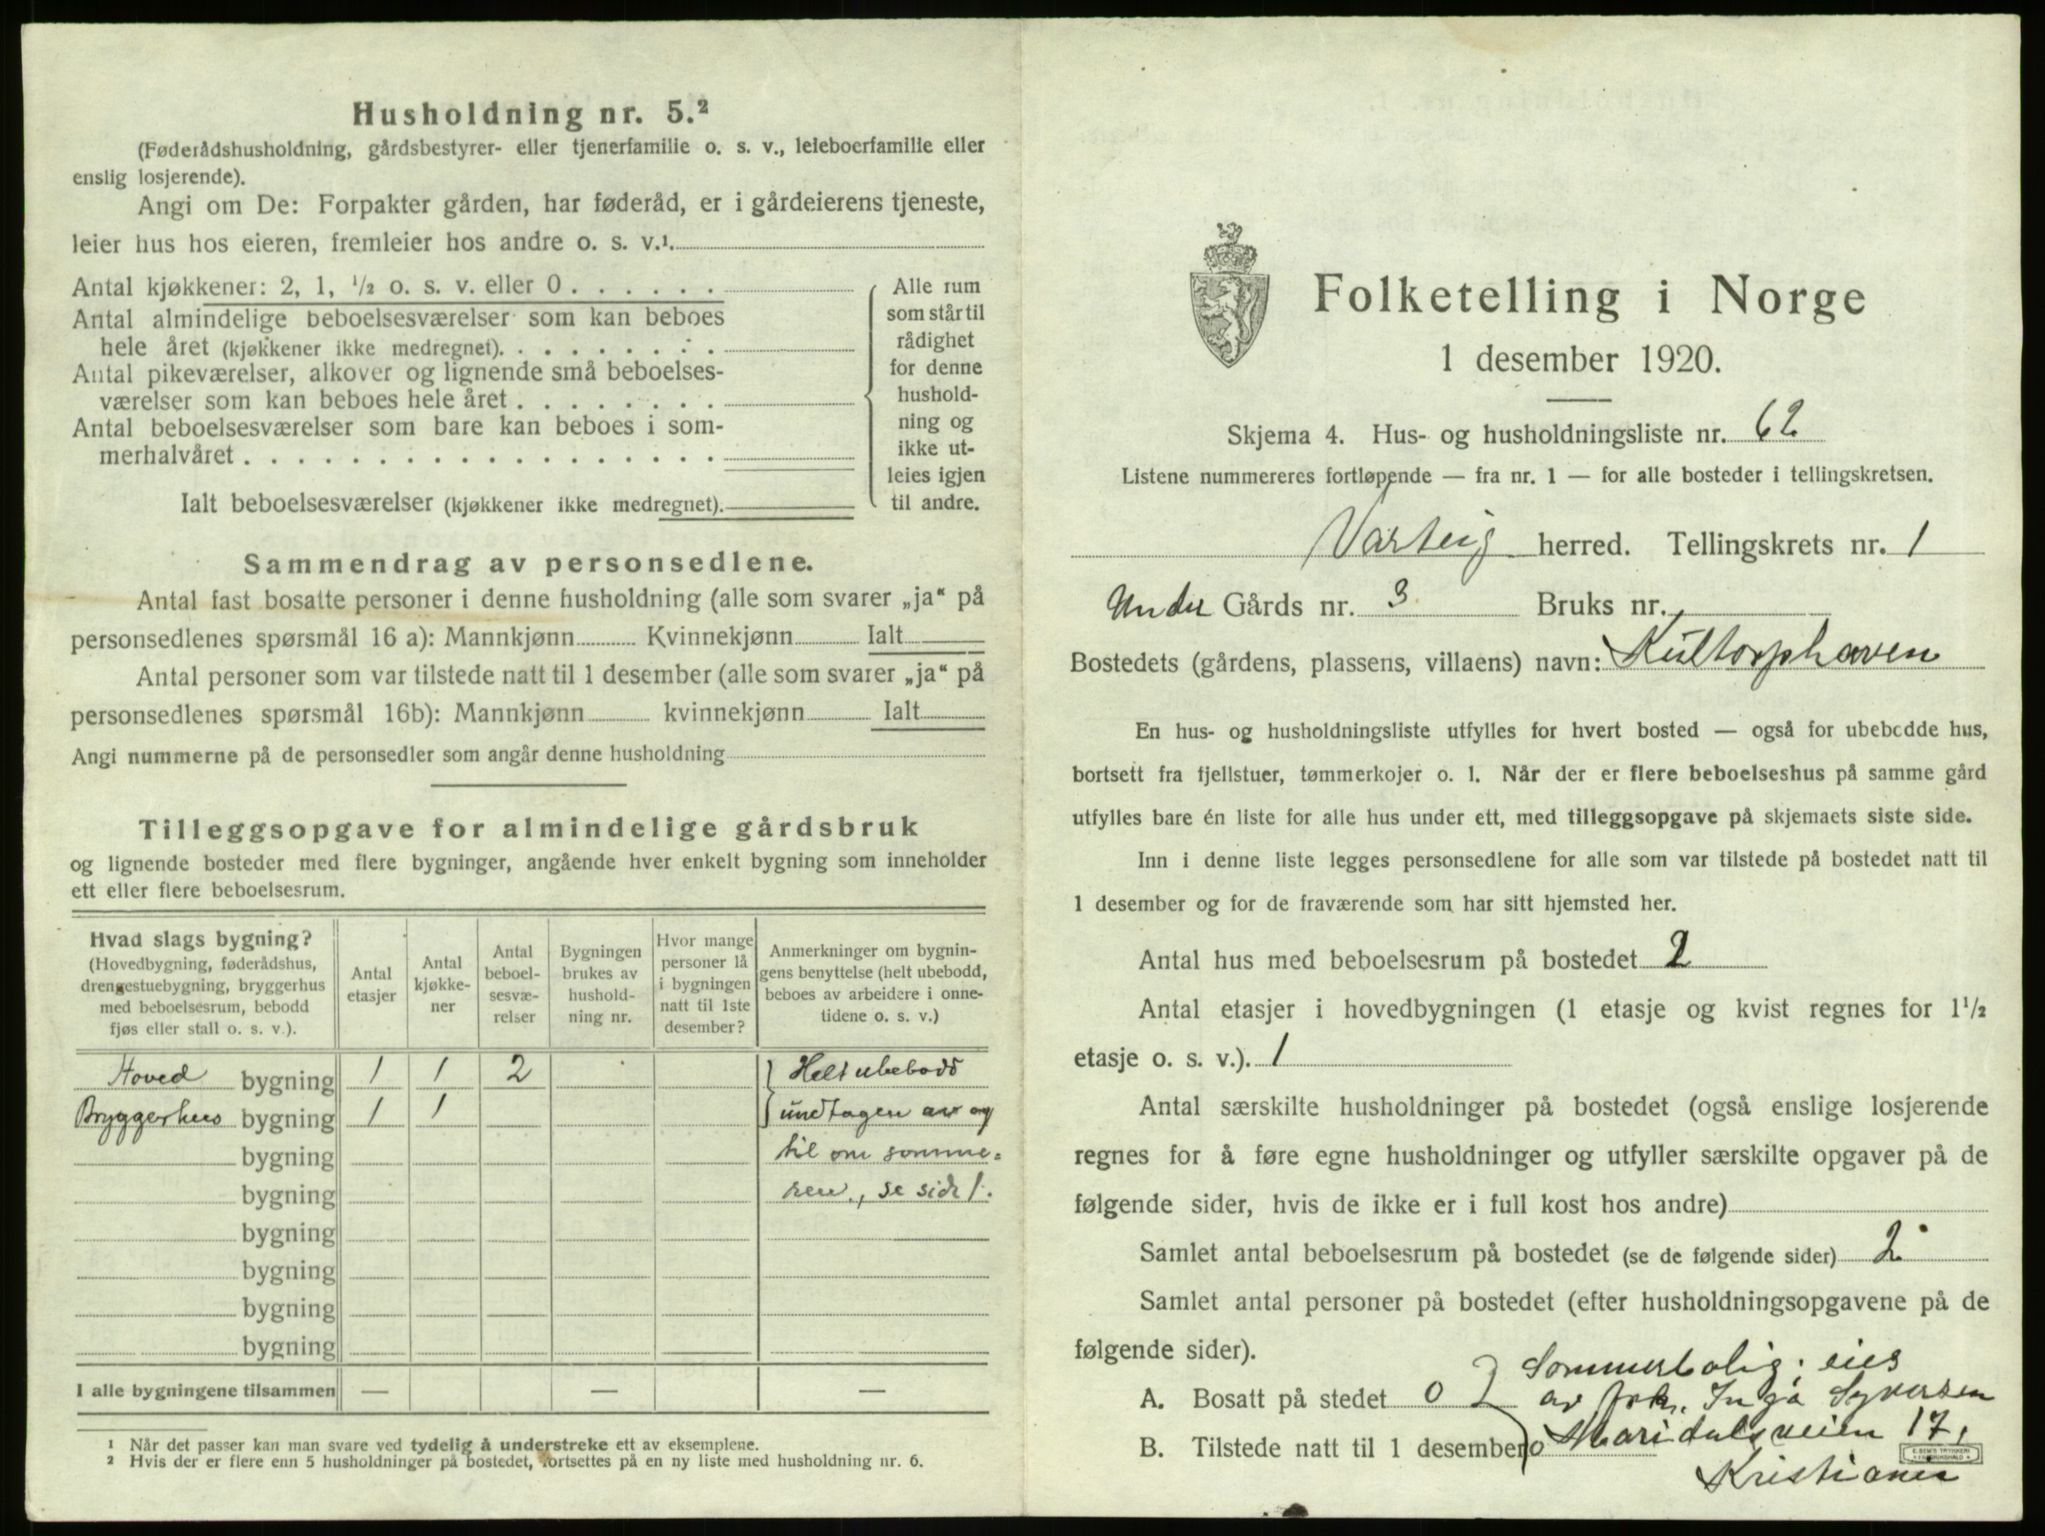 Husholdning nr. 5.²
(Føderådshusholdning, gårdsbestyrer- eller tjenerfamilie o. s. v., leieboerfamilie eller
enslig losjerende).
Angi om De: Forpakter gården, har føderåd, er i gårdeierens tjeneste,
leier hus hos eieren, fremleier hos andre o. s. v.¹.
Antal kjøkkener: 2, 1, ½ o. s. v. eller 0 . . . . . .
Antal almindelige beboelsesværelser som kan beboes
hele året (kjøkkener ikke medregnet). . . . . . . . .
Antal pikeværelser, alkover og lignende små beboelses-
værelser som kan beboes hele året . . . . . . . .
Antal beboelsesværelser som bare kan beboes i som-
merhalvåret . . . . . . . . . . . . . . . . . .
Ialt beboelsesværelser (kjøkkener ikke medregnet).
Alle rum
som står til
rådighet
for denne
hushold-
ning og
ikke ut-
leies igjen
til andre.
Sammendrag av personsedlene.
Antal fast bosatte personer i denne husholdning (alle som svarer „ja“ på
personsedlenes spørsmål 16 a): Mannkjønn Kvinnekjønn Ialt
Antal personer som var tilstede natt til 1 desember (alle som svarer „ja“ på
personsedlenes spørsmål 16b): Mannkjønn kvinnekjønn Ialt
Angi nummerne på de personsedler som angår denne husholdning
Tilleggsopgave for almindelige gårdsbruk
og lignende bosteder med flere bygninger, angående hver enkelt bygning som inneholder
ett eller flere beboelsesrum.
Hvad slags bygning?
(Hovedbygning, føderådshus,
drengestuebygning, bryggerhus
med beboelsesrum, bebodd
fjøs eller stall o. s. v.).
Antal
etasjer
Antal
kjøkke-
ner
Antal
beboel-
sesvæ-
relser
Bygningen
brukes av
hushold-
ning nr.
Hvor mange
personer lå
i bygningen
natt til 1ste
desember?
Anmerkninger om bygnin-
gens benyttelse (helt ubebodd,
beboes av arbeidere i onne-
tidene o. s. v.)
Hoved bygning 1 1 2 Helt ubebodd
Bryggerhus bygning 1 1 undtagen av og
bygning til om somme-
bygning ren, se side 1.
bygning
bygning
bygning
bygning
I alle bygningene tilsammen — — —
¹ Når det passer kan man svare ved tydelig å understreke ett av eksemplene.
² Hvis der er flere enn 5 husholdninger på bostedet, fortsettes på en ny liste med husholdning nr. 6.
Folketelling i Norge
1 desember 1920.
Skjema 4. Hus- og husholdningsliste nr. 62
Listene nummereres fortløpende — fra nr. 1 — for alle bosteder i tellingskretsen.
Varteig herred. Tellingskrets nr. 1
Under Gårds nr. 3 Bruks nr.
Bostedets (gårdens, plassens, villaens) navn: Kultorphaven
En hus- og husholdningsliste utfylles for hvert bosted — også for ubebodde hus,
bortsett fra fjellstuer, tømmerkojer o. l. Når der er flere beboelseshus på samme gård
utfylles bare én liste for alle hus under ett, med tilleggsopgave på skjemaets siste side.
Inn i denne liste legges personsedlene for alle som var tilstede på bostedet natt til
1 desember og for de fraværende som har sitt hjemsted her.
Antal hus med beboelsesrum på bostedet 2
Antal etasjer i hovedbygningen (1 etasje og kvist regnes for 1½
etasje o. s. v.). 1
Antal særskilte husholdninger på bostedet (også enslige losjerende
regnes for å føre egne husholdninger og utfyller særskilte opgaver på de
følgende sider, hvis de ikke er i full kost hos andre)
Samlet antal beboelsesrum på bostedet (se de følgende sider) 2
Samlet antal personer på bostedet (efter husholdningsopgavene på de
følgende sider).
Sommerbolig; eies
A. Bosatt på stedet 0 av frk. Inga Syversen
B. Tilstede natt til 1 desember 0 Maridalsveien 17,
Kristiania